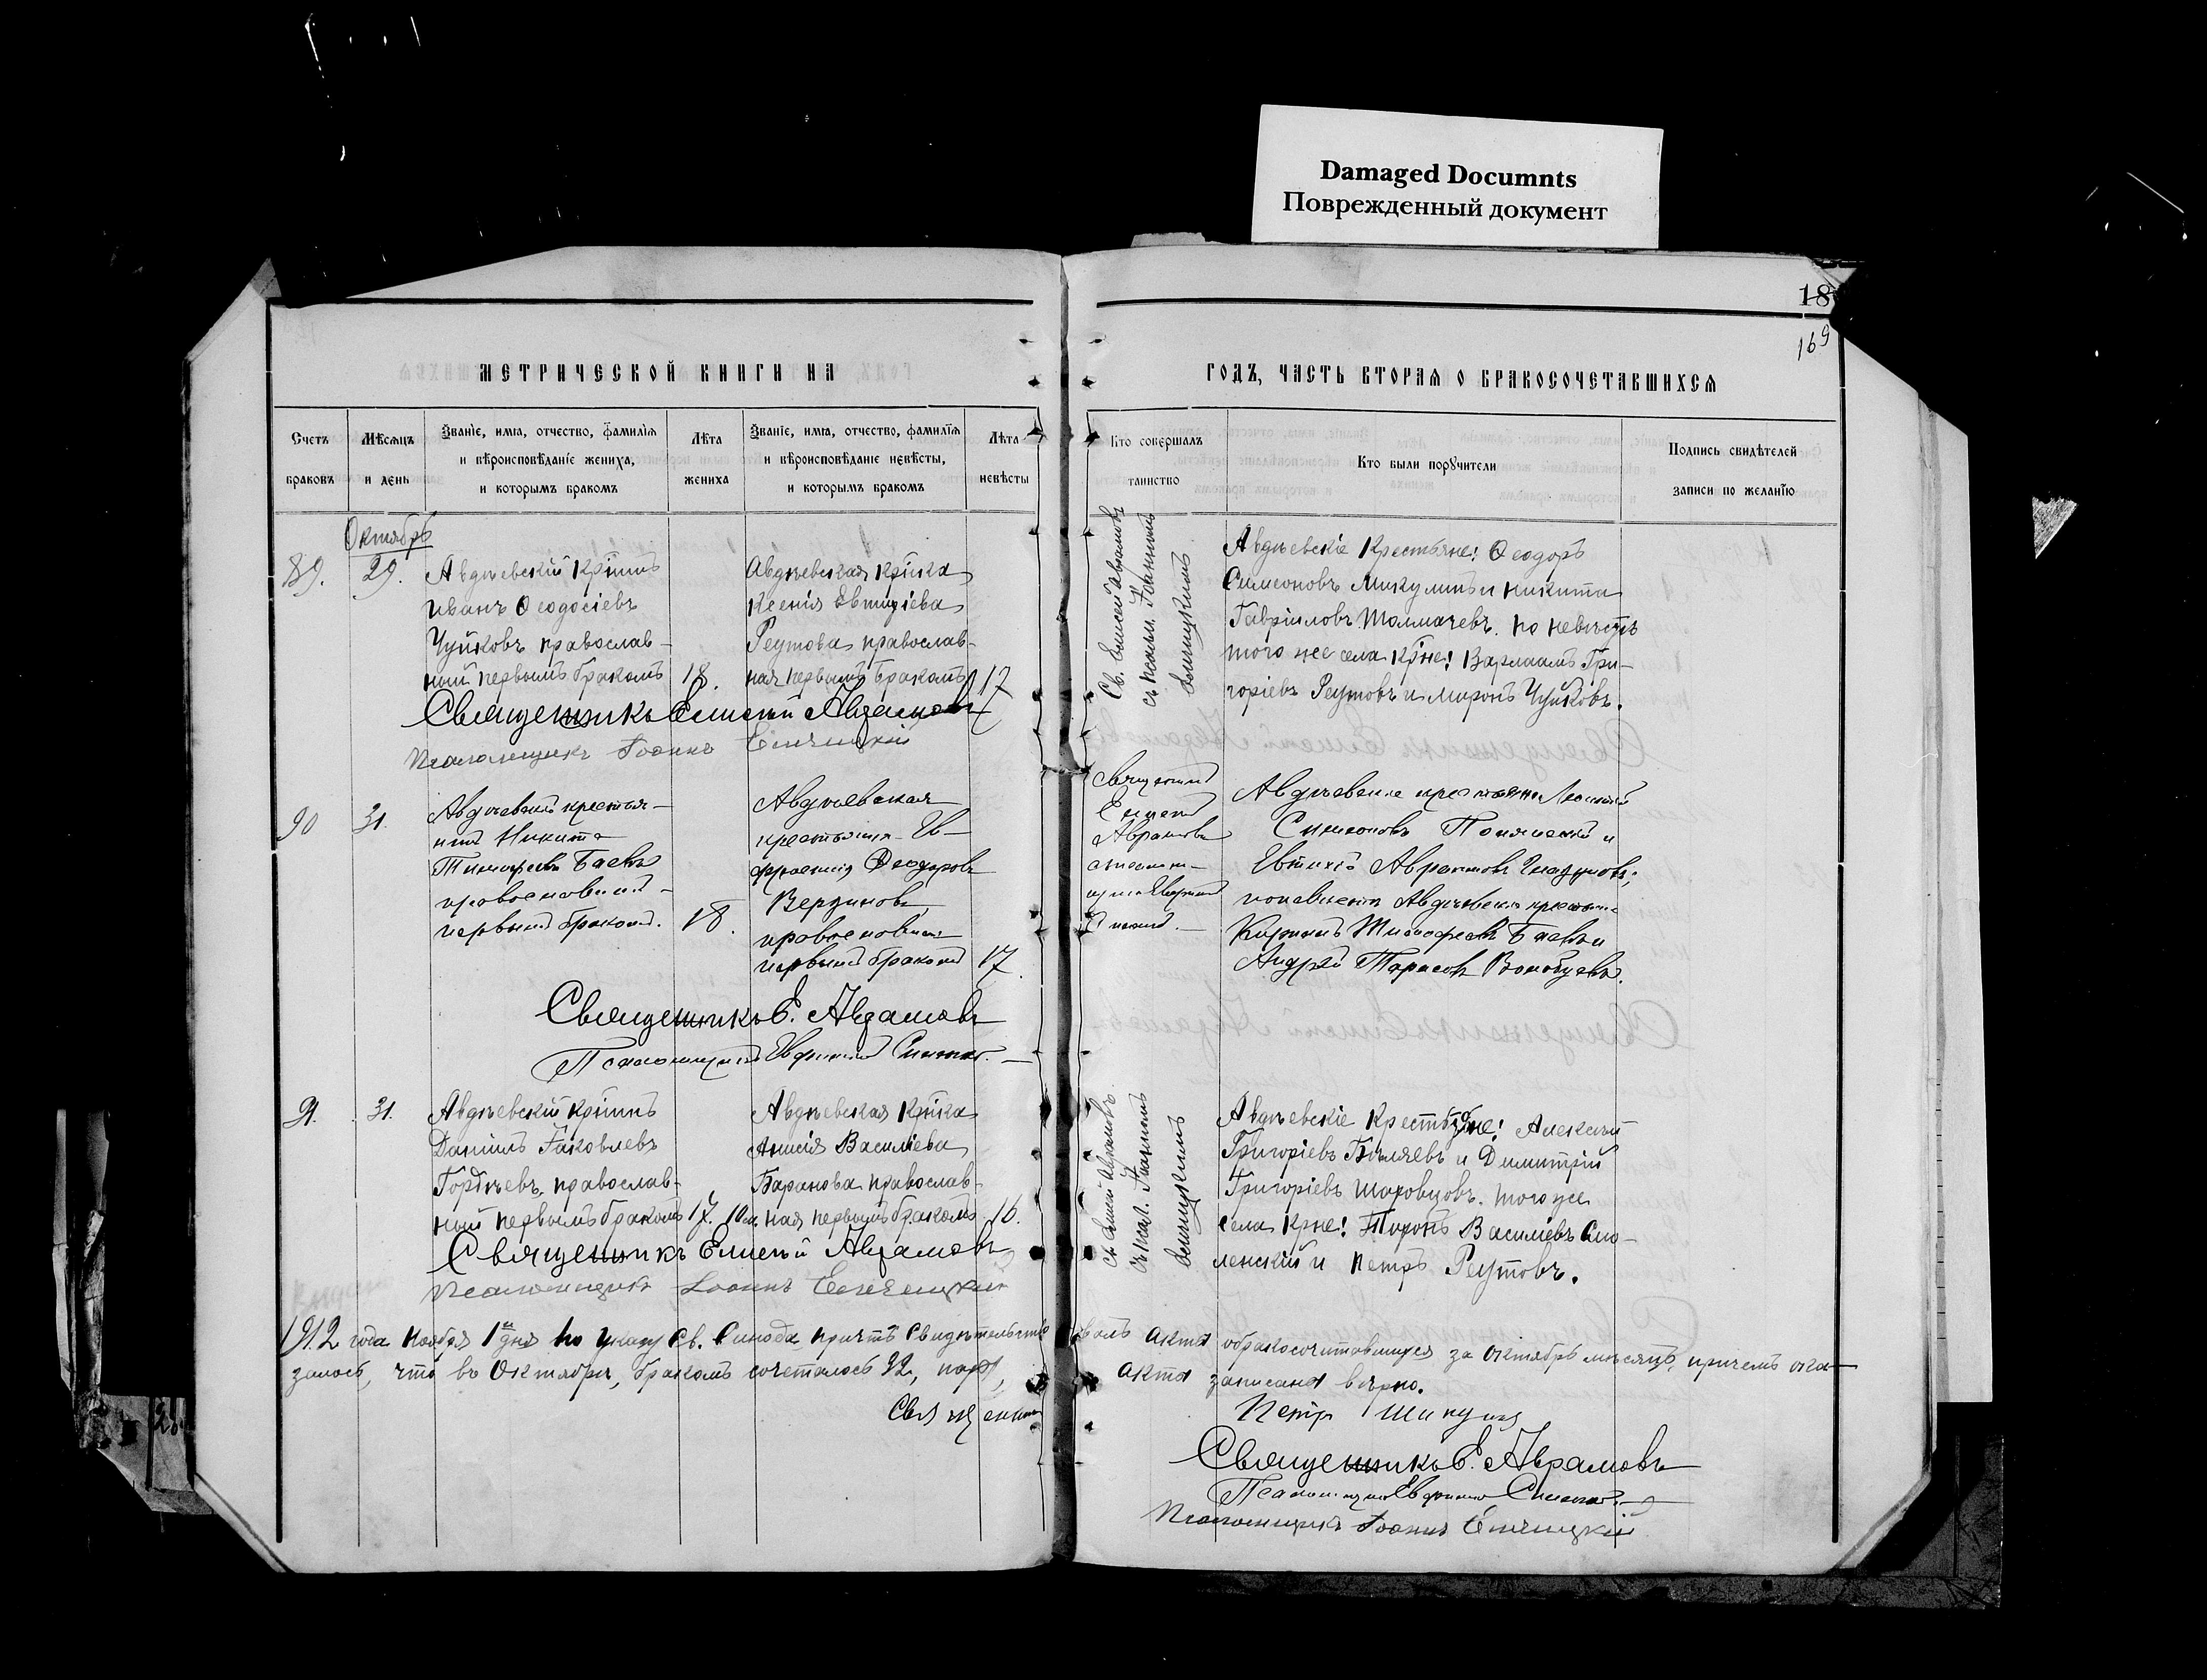 Damaged Documnts
Поврежденный документ
18
169
МЕТРИЧЕСКОЙ КНИГИ НА
ГОДЪ, ЧАСТЬ ВТОРАЯ О БРАКОСОЧЕТАВШИХСЯ
Счетъ браковъ
Мѣсяцъ и день
Званіе, имя, отчество, фамилія и вѣроисповѣданіе жениха, и которымъ бракомъ
Лѣта жениха
Званіе, имя, отчество, фамилія и вѣроисповѣданіе невѣсты, и которымъ бракомъ
Лѣта невѣсты
Кто совершалъ таинство
Кто были поручители
Подпись свидѣтелей записи по желанію
Октябрь
89.
29.
Авдѣевскій крійнъ
Иванъ Ѳеодосіевъ
Чуйковъ православ-
ный первымъ бракомъ
18.
Авдѣевская крійка
Ксенія
Реутова православ-
ная первымъ бракомъ
17
Св. Елисей Аврамовъ
съ псалом. Іоанномъ
Авдѣевскіе Крестьяне: Ѳеодоръ
Симеоновъ Микулинъ и Никита
Гавріиловъ Толмачевъ. по невѣстѣ
того же села крне: Варлаамъ Гри-
горіевъ Реутовъ и Миронъ Чуйковъ.
Священникъ Елисей Аврамовъ
Псаломщикъ Іоаннъ
90
31.
Авдѣевскій крестья-
нинъ Никита
Тимофеевъ Баевъ
православный
первымъ бракомъ.
18.
Авдѣевская
крестьянка Ев-
фросинія Ѳеодорова
православная
первымъ бракомъ
17.
Священникъ
Елисей
Аврамовъ
Авдѣевскіе крестьяне
Симеоновъ и
Евтихій Авраамовъ
по невѣстѣ Авдѣевскіе крестьяне
Тимофеевъ Баевъ и
Андрей Тарасовъ
Священникъ Е. Аврамовъ
Псаломщикъ
91.
31.
Авдѣевскій крійнъ
Даніилъ Іаковлевъ
Гордѣевъ, православ-
ный первымъ бракомъ
17. 10 м.
Авдѣевская крійка
Анисія Василіева
Баранова православ-
ная первымъ бракомъ
16.
Авдѣевскіе Крестьяне: Алексѣй
Григоріевъ Бѣляевъ и Димитрій
Григоріевъ Шаровцовъ. того же
села крне: Василіевъ Смо-
ленскій и Петръ Реутовъ.
Священникъ Елисей Аврамовъ
Псаломщикъ Іоаннъ
1912 года Ноября 1 дня по указу Св. Синода причтъ свидѣтельство-
валъ акты о бракосочетавшихся за Октябрь мѣсяцъ, причемъ ока-
залось, что въ Октябрѣ, бракомъ сочеталось 22, пары,
акты записаны вѣрно.
Священникъ
Петръ
Священникъ Е. Аврамовъ
Псаломщикъ
Псаломщикъ Іоаннъ